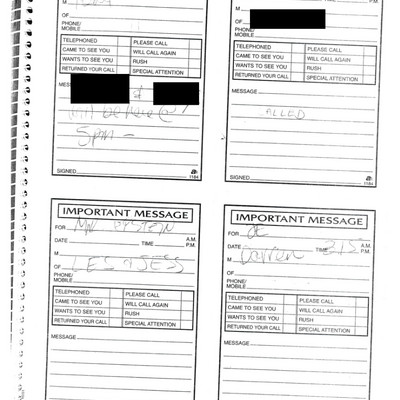 M
OF
PHONE/
MOBILE
TELEPHONED PLEASE CALL
CAME TO SEE YOU WILL CALL AGAIN
WANTS TO SEE YOU RUSH
RETURNED YOUR CALL SPECIAL ATTENTION
MESSAGE
&
will be here @
5pm -
SIGNED 1184
M
OF
PHONE/
MOBILE
TELEPHONED PLEASE CALL
CAME TO SEE YOU WILL CALL AGAIN
WANTS TO SEE YOU RUSH
RETURNED YOUR CALL SPECIAL ATTENTION
MESSAGE
CALLED
SIGNED 1184
IMPORTANT MESSAGE
FOR
DATE TIME A.M.
P.M.
M
OF LES & JESS
PHONE/
MOBILE
TELEPHONED PLEASE CALL
CAME TO SEE YOU WILL CALL AGAIN
WANTS TO SEE YOU RUSH
RETURNED YOUR CALL SPECIAL ATTENTION
MESSAGE
IMPORTANT MESSAGE
FOR JE
DATE TIME A.M.
P.M.
M Darren 315
OF
PHONE/
MOBILE
TELEPHONED PLEASE CALL
CAME TO SEE YOU WILL CALL AGAIN
WANTS TO SEE YOU RUSH
RETURNED YOUR CALL SPECIAL ATTENTION
MESSAGE